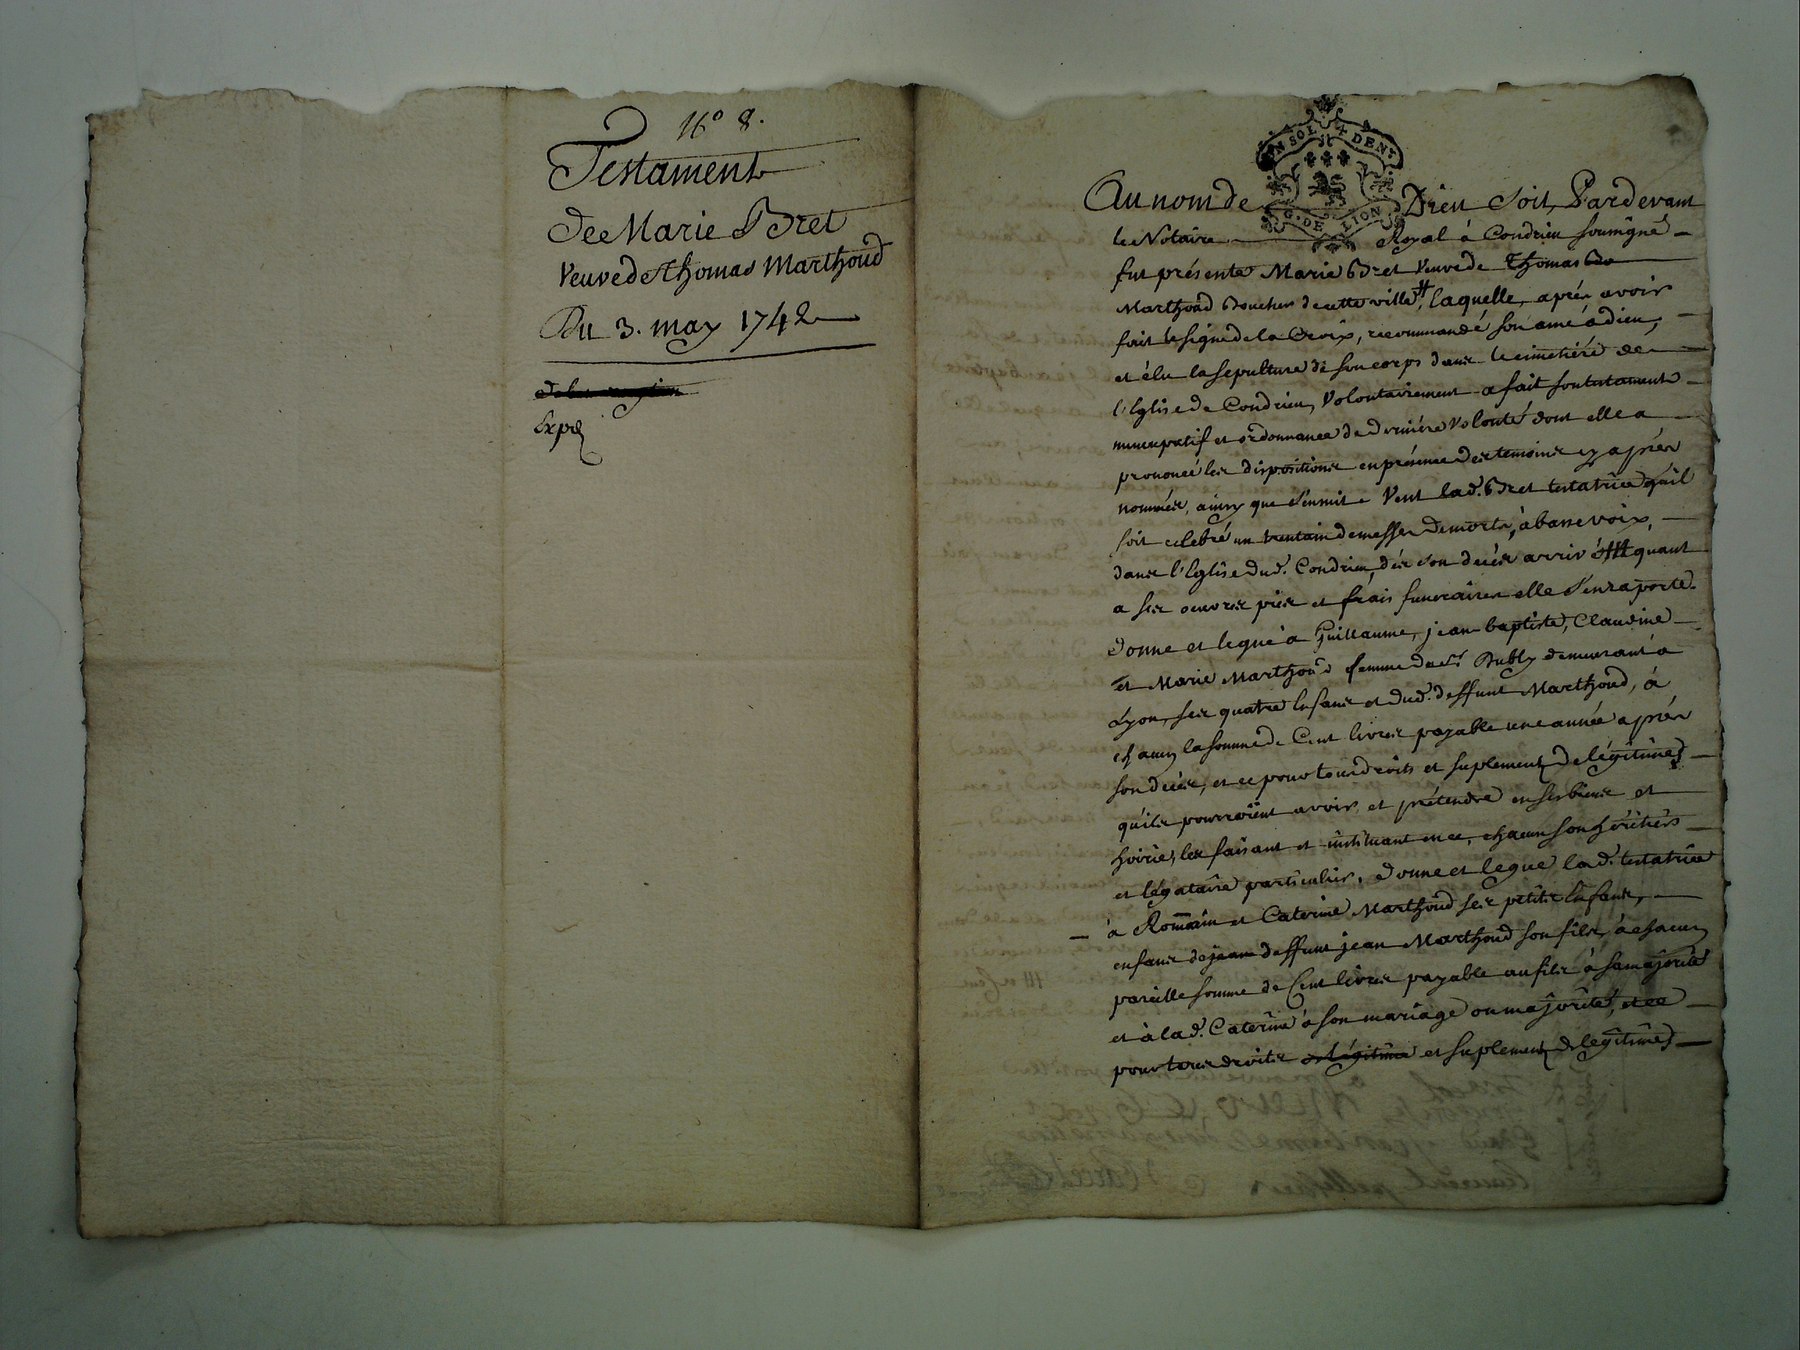 N° 8.
Testament
De Marie Bret
Veuve de Thomas Marthoud
Du 3. may 1742
Expé
UN SOL + DENrs
G. DE LION
Au nom de Dieu soit, Pardevant
le Notaire Royal à Condrieu soussigné
fut présente Marie Bret Veuve de Thomas
Marthoud Boucher de cette ville, laquelle, aprés avoir
fait le signe de la Croix, recommandé son ame à dieu,
et élu la sepulture de son corps dans le cimetiére de
l'Eglise de Condrieu, Volontairement a fait son testament
nuncupatif et ordonnance de derniére Volonté dont elle a
prononcé les dispositions en présence des temoins cy aprés
nommés, ainsy que s'ensuit Veut lad. Bret testatrice qu'il
soit celebré un trentain de messes de morts, à basse voix,
dans l'Eglise dud. Condrieu, dés son decés arrivé quant
a ses oeuvres pies et frais funeraires elle s'en raporte.
donne et legue à Guillaume, jean baptiste, Claudine
et Marie Marthoud femme du Sr Bubly demeurant a
Lyon, ses quatre Enfans et dud. deffunt Marthoud, à
chacun la somme de Cent livres payable une année aprés
son decés, et ce pour tous droits et suplement de légitimes
qu'ils pourroient avoir et prétendre en ses biens et
hoirie, les faisant et instituant en ce, chacun son héritiers
et légataire particulier. donne et legue lad. testatrice
à Romain et Caterine Marthoud ses petits Enfans,
enfans de jeane deffunt jean Marthoud son fils, à chacun
pareille somme de Cent livres payable au fils à sa majorité
et à lad. Caterine à son mariage ou majorité, et ce
pour tous droits et légitime et suplement de legitimes